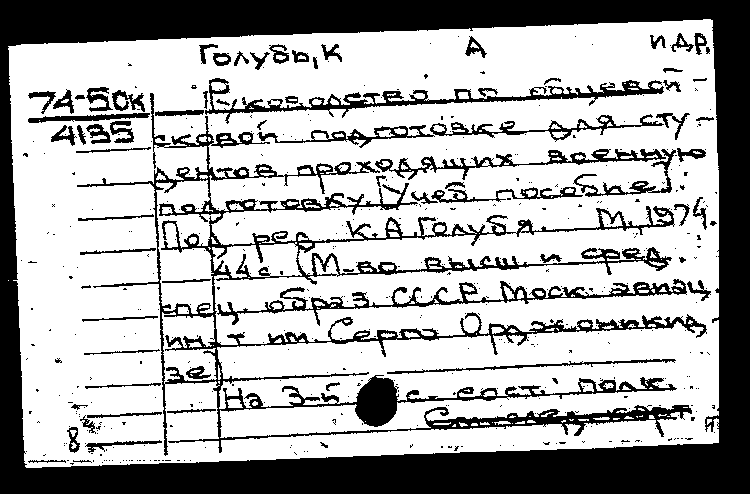 Голубь, К А и др.
74-50к Руководство по общевой-
4135 сковой подготовке для сту-
дентов, проходящих военную
подготовку. [Учеб. пособие].
Под ред. К.А.Голубя. М., 1974.
44 с. (М-во высш. и сред.
спец. образ. СССР. Моск. авиац.
ин-т им. Серго Орджоникид-
зе).
На 3-й с. сост.: полк.
См. след. карт.
8